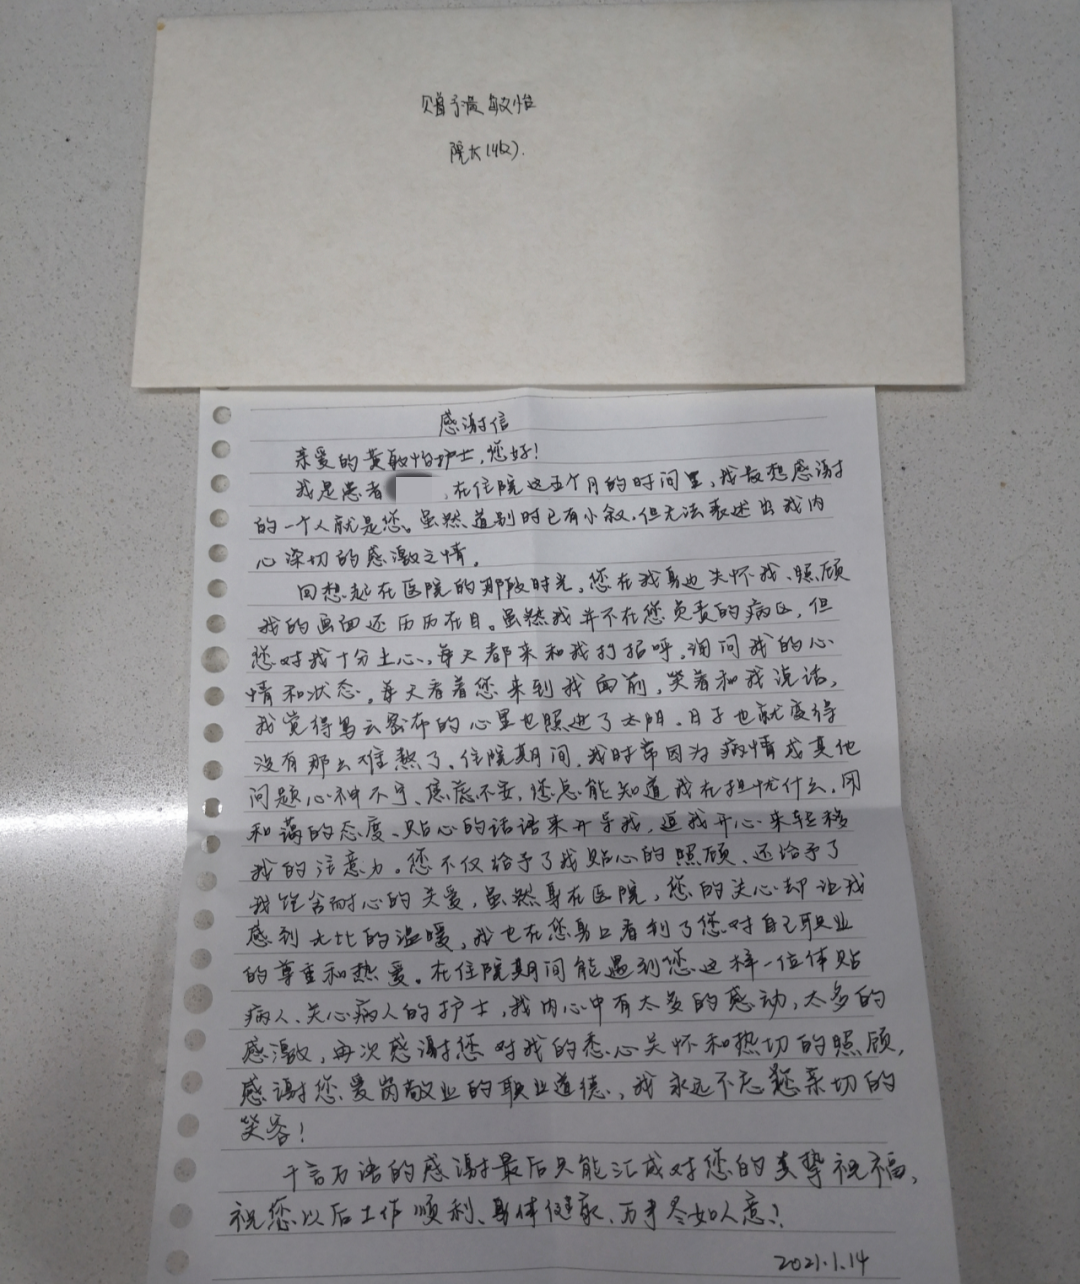 赠予黄敏怡
院长(收).
感谢信
亲爱的黄敏怡护士,您好!
我是患者 ,在住院这五个月的时间里,我最想感谢
的一个人就是您。虽然道别时已有小叙,但无法表述出我内
心深切的感激之情。
回想起在医院的那段时光,您在我身边关怀我、照顾
我的画面还历历在目。虽然我并不在您负责的病区,但
您对我十分上心,每天都来和我打招呼,询问我的心
情和状态。每天看着您来到我面前,笑着和我说话,
我觉得乌云密布的心里也照进了太阳。日子也就变得
没有那么难熬了。住院期间,我时常因为病情或其他
问题心神不宁、焦虑不安,您总能知道我在担忧什么,用
和蔼的态度、贴心的话语来开导我,逗我开心来转移
我的注意力。您不仅给予了我贴心的照顾、还给予了
我饱含耐心的关爱,虽然身在医院,您的关心却让我
感到无比的温暖,我也在您身上看到了您对自己职业
的尊重和热爱。在住院期间能遇到您这样一位体贴
病人、关心病人的护士,我内心中有太多的感动,太多的
感激,再次感谢您对我的悉心关怀和热切的照顾,
感谢您爱岗敬业的职业道德,我永远不忘您亲切的
笑容!
千言万语的感谢最后只能汇成对您的真挚祝福,
祝您以后工作顺利、身体健康、万事尽如人意!
2021.1.14